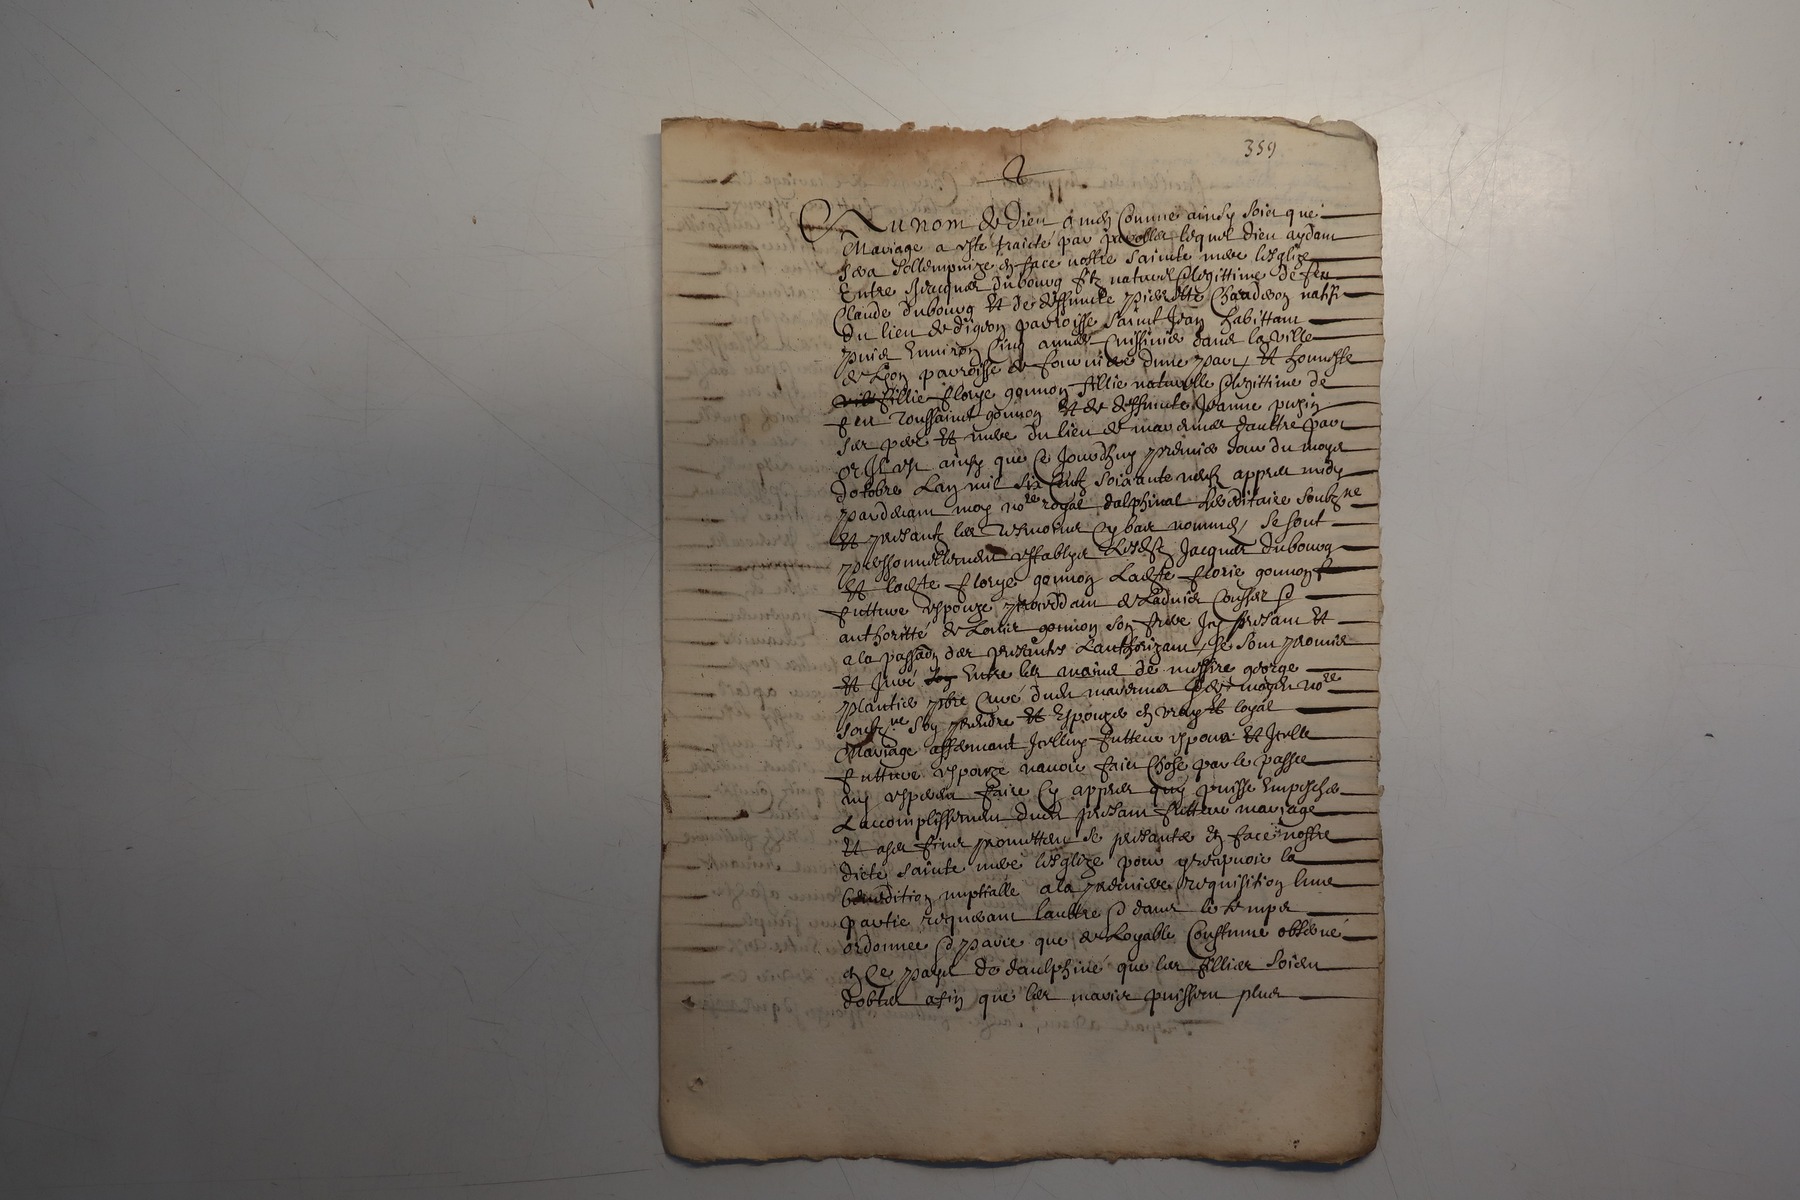 359
Au nom de Dieu amen Comme ainsy soict que
Mariage a esté traicté par parolles lequel dieu aydant
sera sollempnize en face nostre sainte mere lesglize
Entre Jacques dubourg filz naturel & legittime de feu
Claude dubourg Et de deffuncte pierrette Chardeon natif
du lieu de digeon parroisse saint Jean habittant
puis Environ cinq annees Cuissinier dans la ville
de Lion parroisse de fourviere dune part Et honneste
fillie florye gonnon fillie naturelle & legittime de
feu Toussaint gonnon Et de deffuncte Jeanne
ses pere Et mere du lieu de mavernes daultre part
or Il est ainsy que ce Jourdhuy premier Jour du moys
doctobre Lan mil six centz soixante neufz appres midy
pardevant moy nore royal dalphinal hereditaire soubzne
Et presantz les tesmoins cy bas nommes se sont
personnellement establys Ledt Jacques dubourg
Et ladte florye gonnon Ladte florie gonnon
future espouze procedant de Ladvis Conseil &
authoritté de gonnon son frere Icy presant Et
a la passaon des presantes Lauthorizant se sont promis
Et Juré Entre les mains de messire george
plantier pbre Curé dudt mavernes & de moydt nore
soubzne soy prendre Et Espouzer en vray Et loyal
Mariage affermant Icelluy futteur espoux Et Icelle
future espouze navoir faict chose par le passe
ny esperer faire cy appres quy puisse Empescher
Laccomplissement dudt presant futteur mariage
Et a ses fins promettent se presanter en face nostre
dicte sainte mere lesglize pour y recepvoir la
benedition nuptialle a la premiere requisition lune
partie requerant laultre & dans le temps
ordonnee & parce que de Loyable Coustume observé
en ce pays de daulphiné que les fillies soient
dottes afin que les maris puissent plus